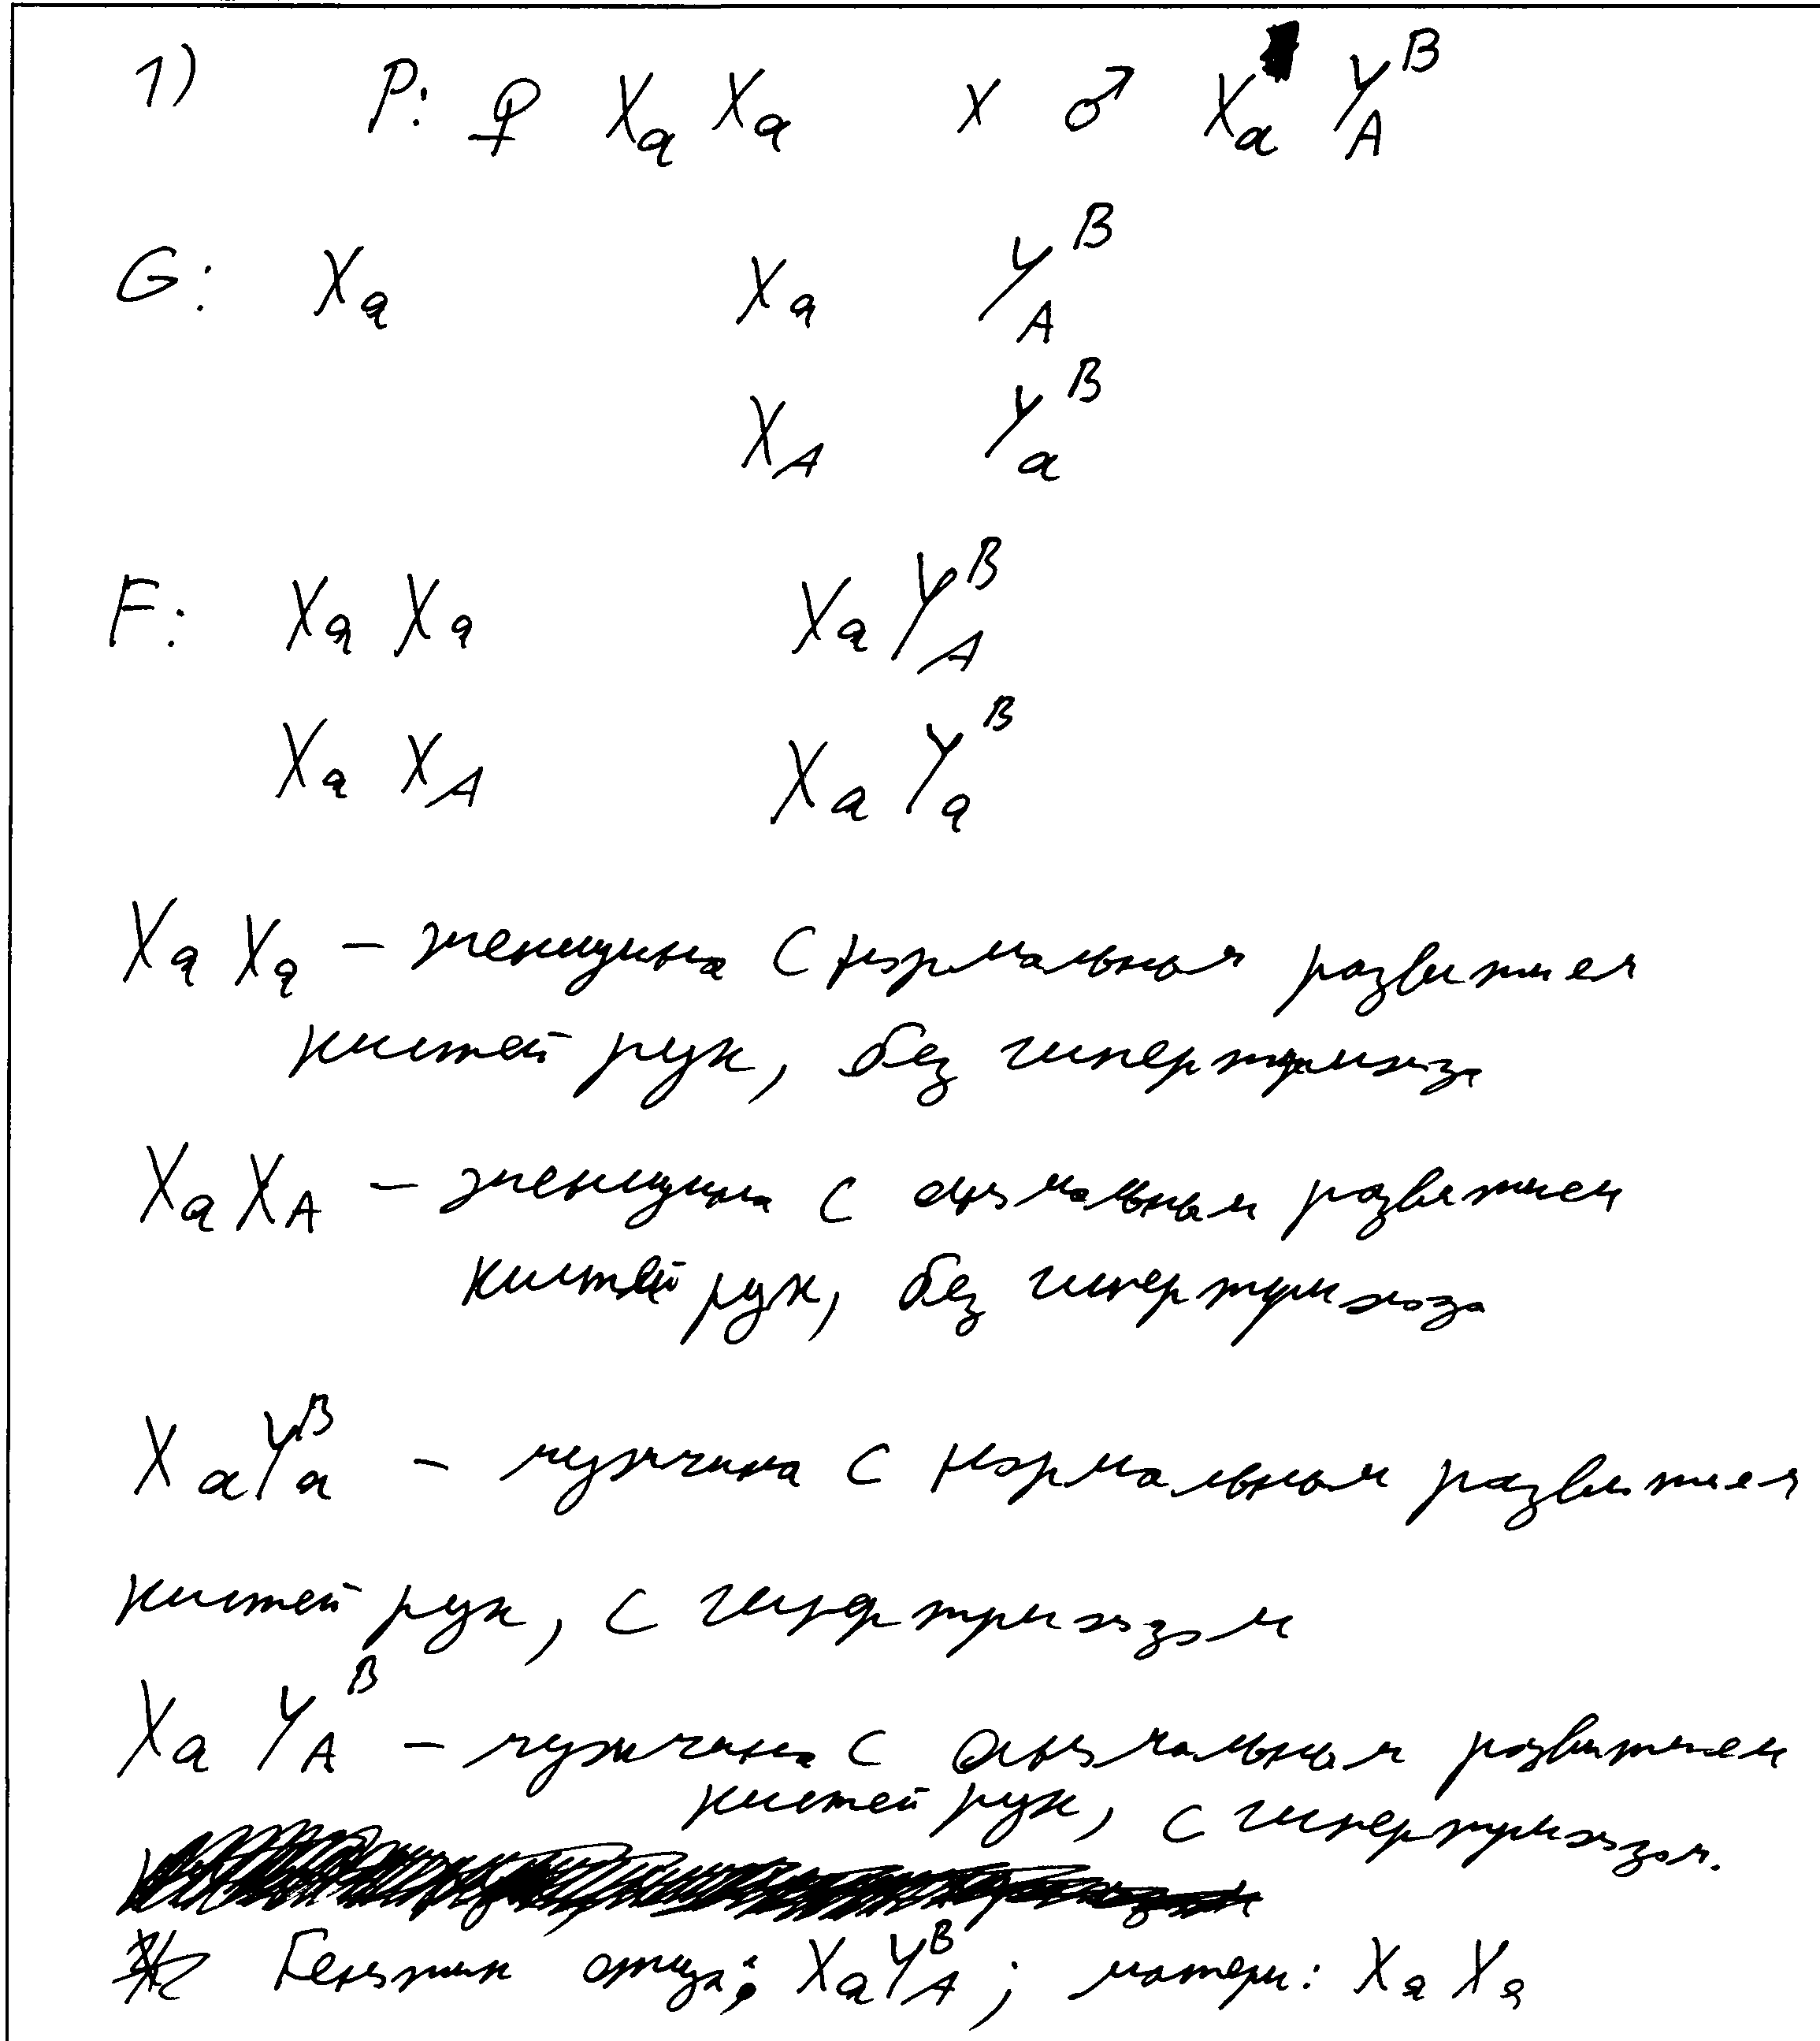 1) P: ♀ XₐXₐ x ♂ Xₐ Y_A^B
G: Xₐ Xₐ Y_A^B
X_A Yₐ^B
F: Xₐ Xₐ Xₐ Y_A^B
Xₐ X_A Xₐ Yₐ^B
Xₐ Xₐ – женщина с нормальным развитием
кистей рук, без гипертрихоза
Xₐ X_A – женщина с аномальным развитием
кистей рук, без гипертрихоза
XₐYₐ^B – мужчина с нормальным развитием
кистей рук, с гипертрихозом
Xₐ Y_A^B – мужчина с аномальным развитием
кистей рук, с гипертрихозом.
Генотип отца: XₐY_A^B; матери: Xₐ Xₐ